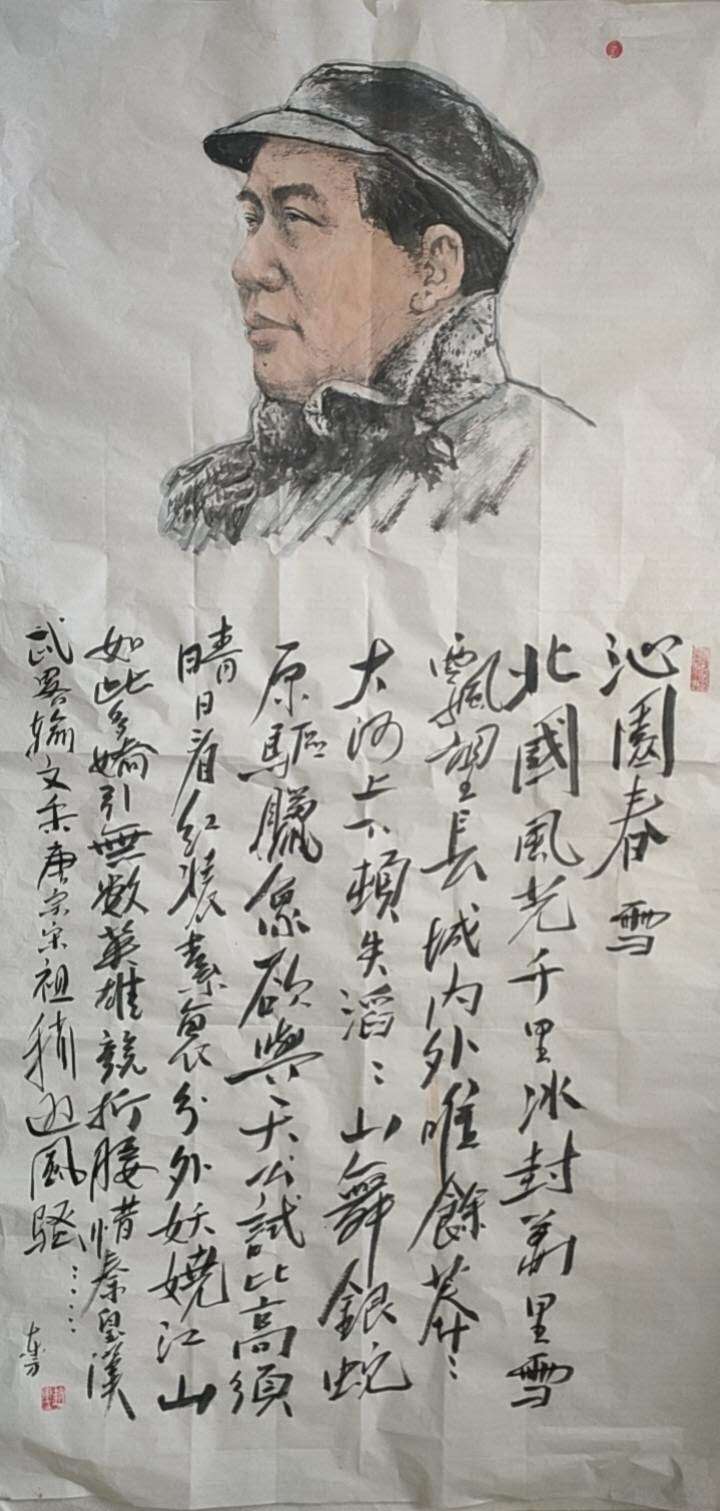 沁園春 雪
北國風光千里冰封萬里雪
飄望長城內外唯餘莽〻
大河上下頓失滔〻山舞銀蛇
原驅臘象欲與天公試比高須
晴日看紅裝素裹分外妖嬈江山
如此多嬌引無數英雄競折腰惜秦皇漢
武略輸文采唐宗宋祖稍遜風騷……